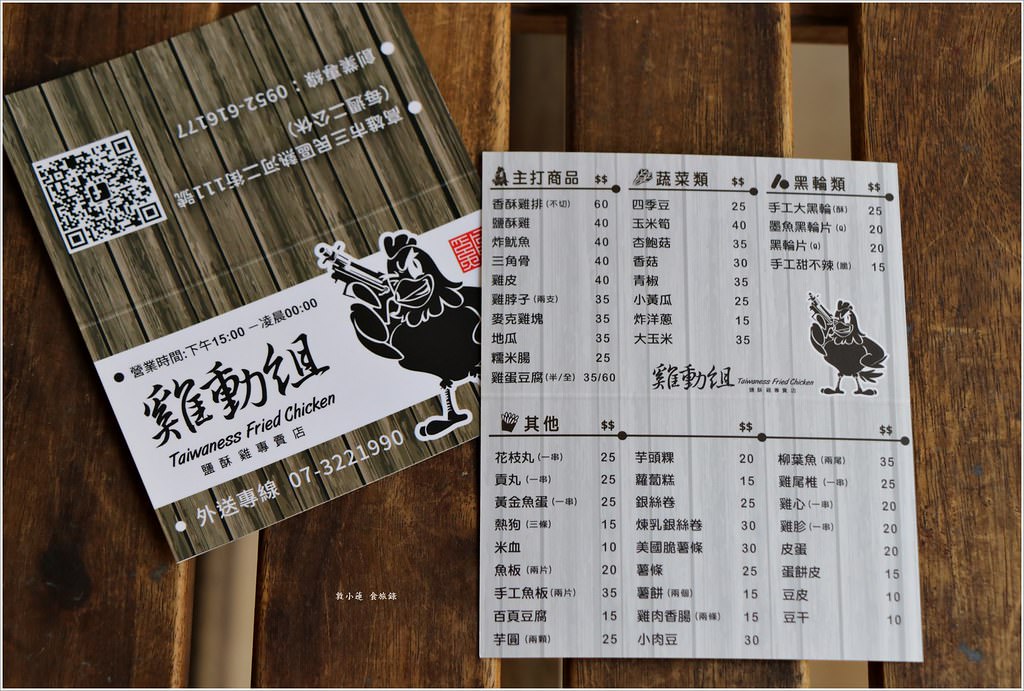 創業專線：0952-616177
高雄市三民區熱河二街111號
(每週二公休)
營業時間:下午15:00 －凌晨00:00
雞動組
Taiwaness Fried Chicken
鹽酥雞專賣店
外送專線 07-3221990
主打商品 $$
香酥雞排(不切) 60
鹽酥雞 40
炸魷魚 40
三角骨 40
雞皮 40
雞脖子(兩支) 35
麥克雞塊 35
地瓜 35
糯米腸 25
雞蛋豆腐(半/全) 35/60
蔬菜類 $$
四季豆 25
玉米筍 40
杏鮑菇 35
香菇 30
青椒 35
小黃瓜 25
炸洋蔥 15
大玉米 35
黑輪類 $$
手工大黑輪(酥) 25
墨魚黑輪片(Q) 20
黑輪片(Q) 20
手工甜不辣(脆) 15
雞動組 Taiwaness Fried Chicken
鹽酥雞專賣店
其他 $$ $$ $$
花枝丸(一串) 25
貢丸(一串) 25
黃金魚蛋(一串) 25
熱狗(三條) 15
米血 10
魚板(兩片) 20
手工魚板(兩片) 35
百頁豆腐 15
芋圓(兩顆) 25
芋頭粿 20
蘿蔔糕 15
銀絲卷 25
煉乳銀絲卷 30
美國脆薯條 30
薯條 25
薯餅(兩個) 15
雞肉香腸(兩條) 15
小肉豆 30
柳葉魚(兩尾) 35
雞尾椎(一串) 25
雞心(一串) 20
雞胗(一串) 20
皮蛋 20
蛋餅皮 15
豆皮 10
豆干 10
敦小蓮 食旅錄